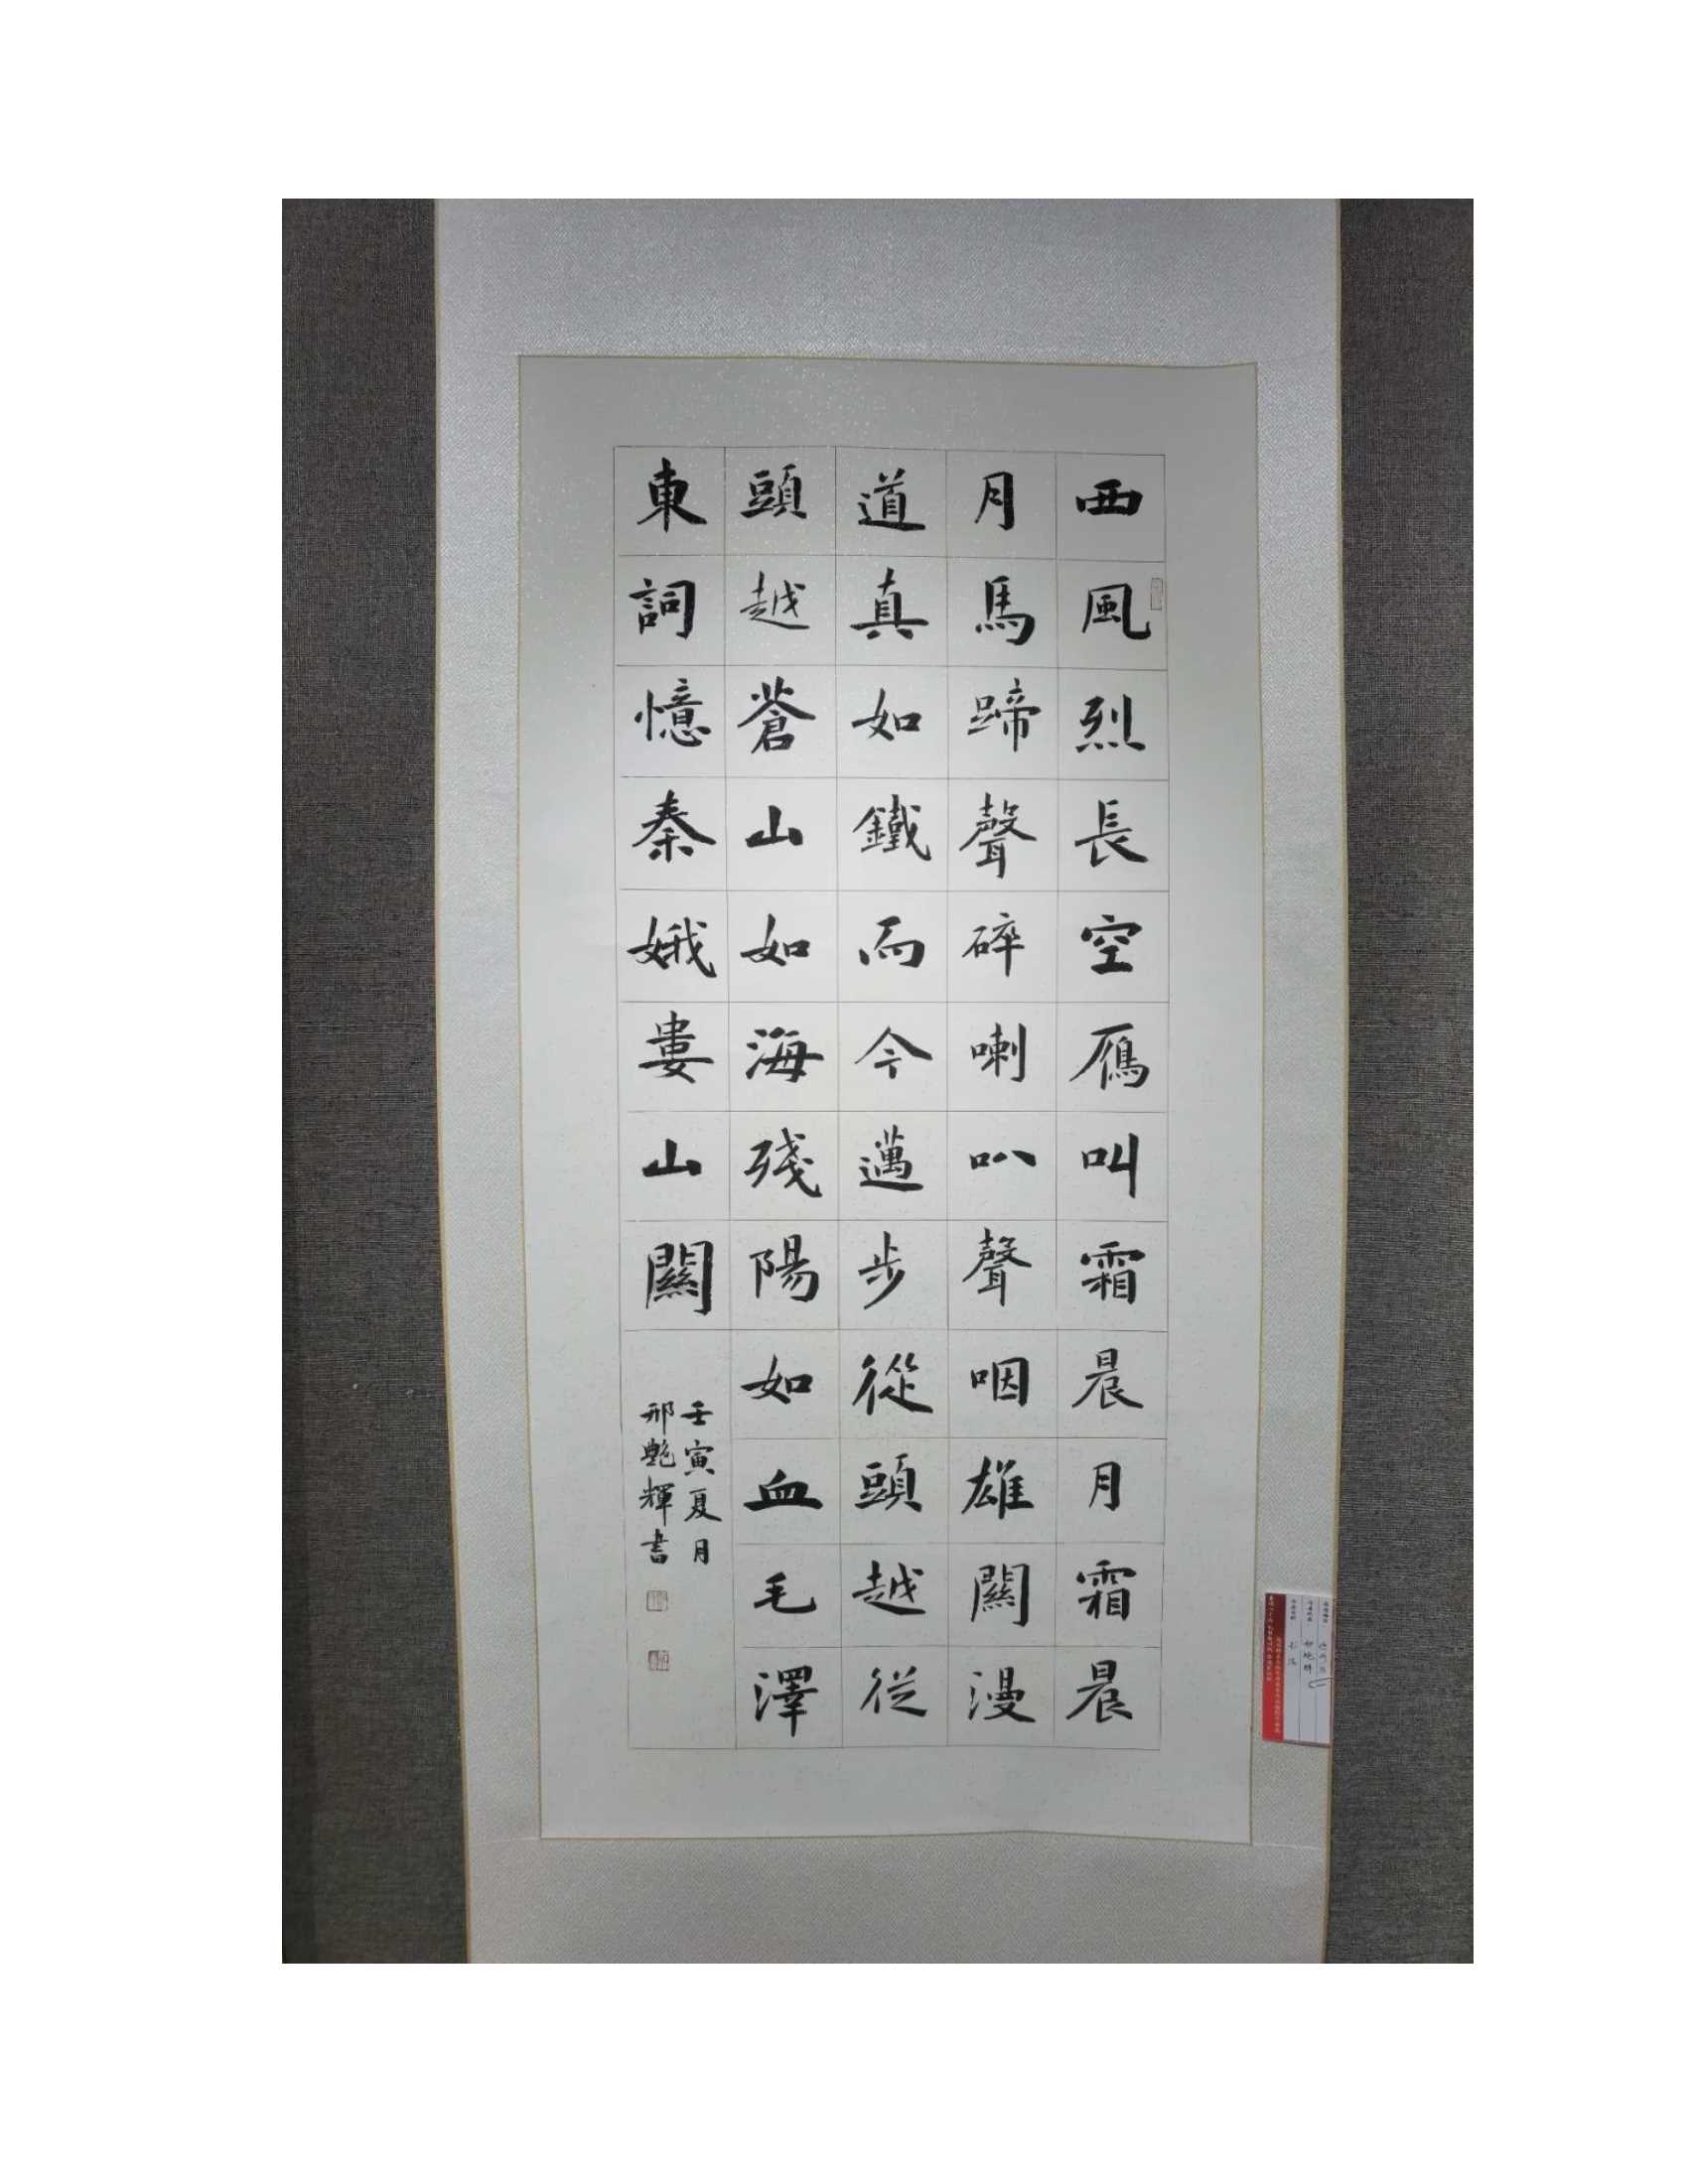 西風烈長空鴈叫霜晨月霜晨
月馬蹄聲碎喇叭聲咽雄關漫
道真如鐵而今邁步從頭越從
頭越蒼山如海殘陽如血毛澤
東詞憶秦娥婁山關
壬寅夏月
邢艷輝書